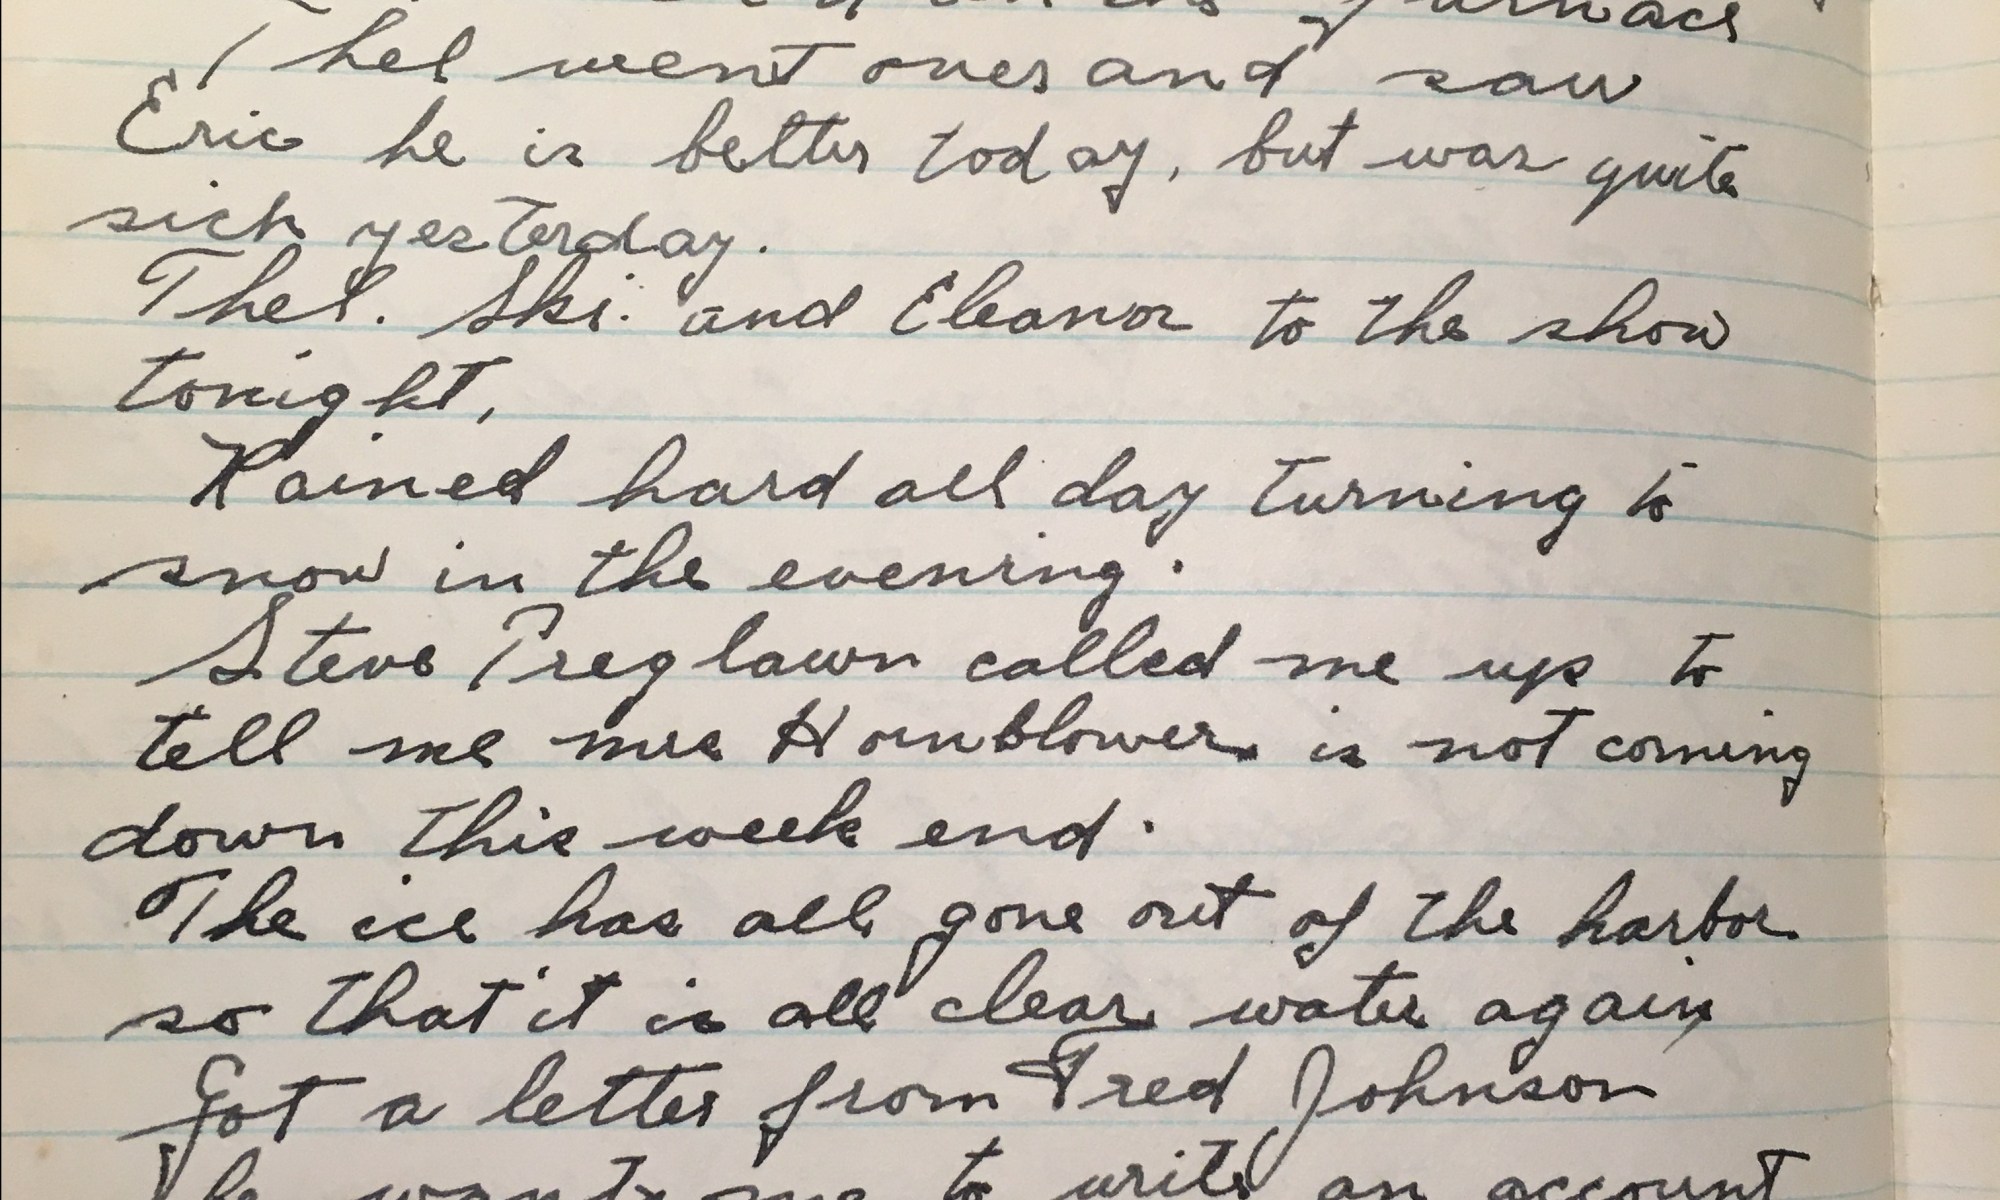 furnace
Thel went over and saw
Eric he is better today, but was quite
sick yesterday.
Thel. Ski. and Eleanor to the show
tonight,
Rained hard all day turning to
snow in the evening.
Steve Treglawn called me up to
tell me mrs Hornblower is not coming
down this week end.
The ice has all gone out of the harbor
so that it is all clear water again
Got a letter from Fred Johnson
he wants me to write an account